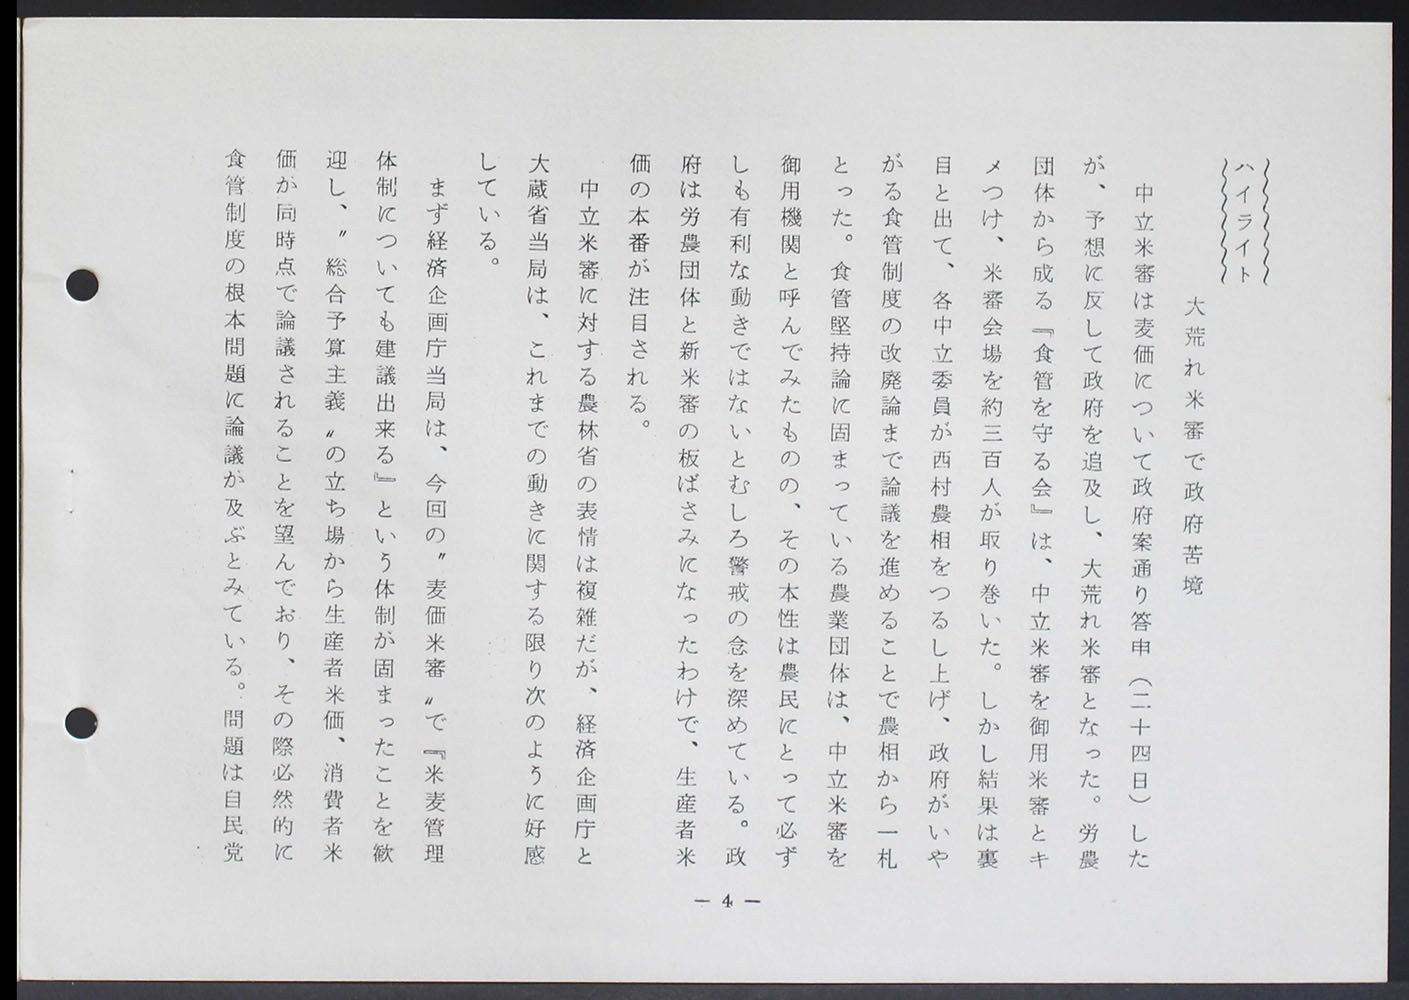 ハイライト
大荒れ米審で政府苦境
中立米審は麦価について政府案通り答申（二十四日）した
が、予想に反して政府を追及し、大荒れ米審となった。労農
団体から成る『食管を守る会』は、中立米審を御用米審とキ
メつけ、米審会場を約三百人が取り巻いた。しかし結果は裏
目と出て、各中立委員が西村農相をつるし上げ、政府がいや
がる食管制度の改廃論まで論議を進めることで農相から一札
とった。食管堅持論に固まっている農業団体は、中立米審を
御用機関と呼んでみたものの、その本性は農民にとって必ず
しも有利な動きではないとむしろ警戒の念を深めている。政
府は労農団体と新米審の板ばさみになったわけで、生産者米
価の本番が注目される。
中立米審に対する農林省の表情は複雑だが、経済企画庁と
大蔵省当局は、これまでの動きに関する限り次のように好感
している。
まず経済企画庁当局は、今回の〝麦価米審〟で『米麦管理
体制についても建議出来る』という体制が固まったことを歓
迎し、〝総合予算主義〟の立ち場から生産者米価、消費者米
価が同時点で論議されることを望んでおり、その際必然的に
食管制度の根本問題に論議が及ぶとみている。問題は自民党
— 4 —